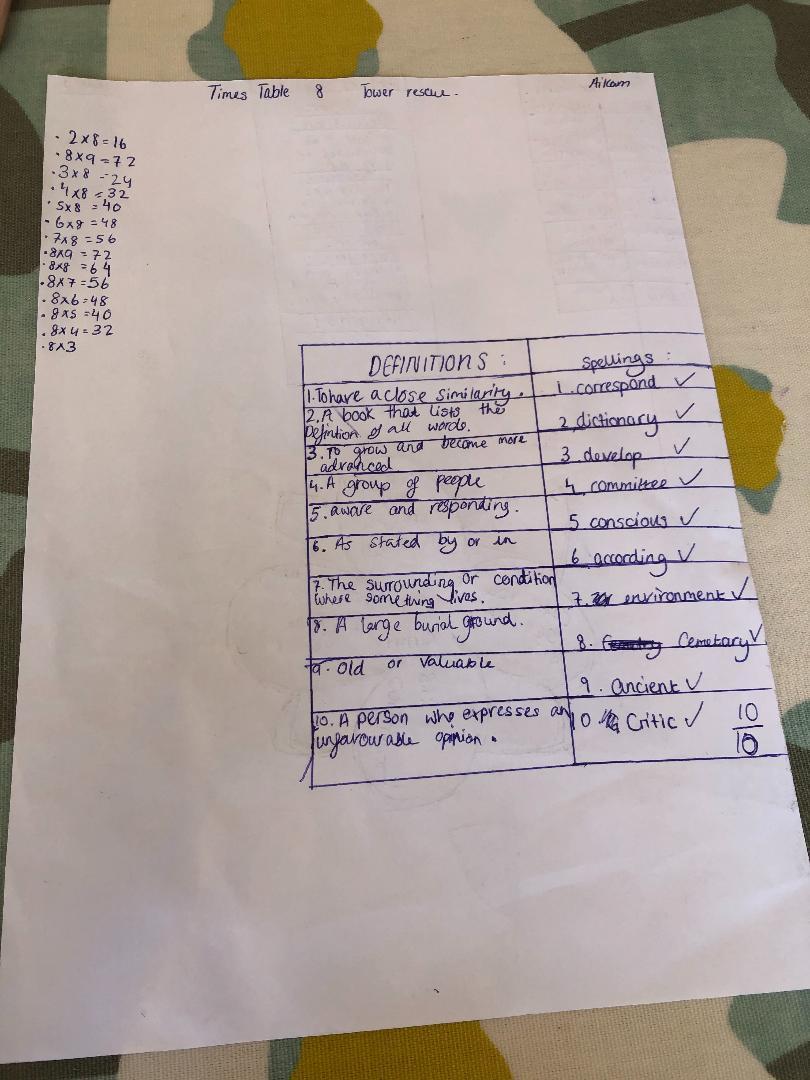 Times Table 8 Tower rescue.
Aikam
· 2x8=16
· 8x9=72
· 3x8 = 24
· 4x8 = 32
· 5x8 = 40
· 6x8 = 48
· 7x8 = 56
· 8x9 = 72
· 8x8 = 64
· 8x7 = 56
· 8x6 = 48
· 8x5 = 40
· 8x4 = 32
· 8x3
DEFINITIONS :
Spellings :
1. To have a close similarity.
1. correspond ✓
2. A book that lists the
Defintion of all words.
2. dictionary ✓
3. To grow and become more
advanced
3. develop ✓
4. A group of people
4. committee ✓
5. aware and responding.
5 conscious ✓
6. As stated by or in
6. according ✓
7. The surrounding or condition
where something lives.
7. environment ✓
8. A large burial ground.
8. Cemetary ✓
9. Old or valuable
9. ancient ✓
10. A person who expresses an
unfavourable opinion.
10 Critic ✓
10
10